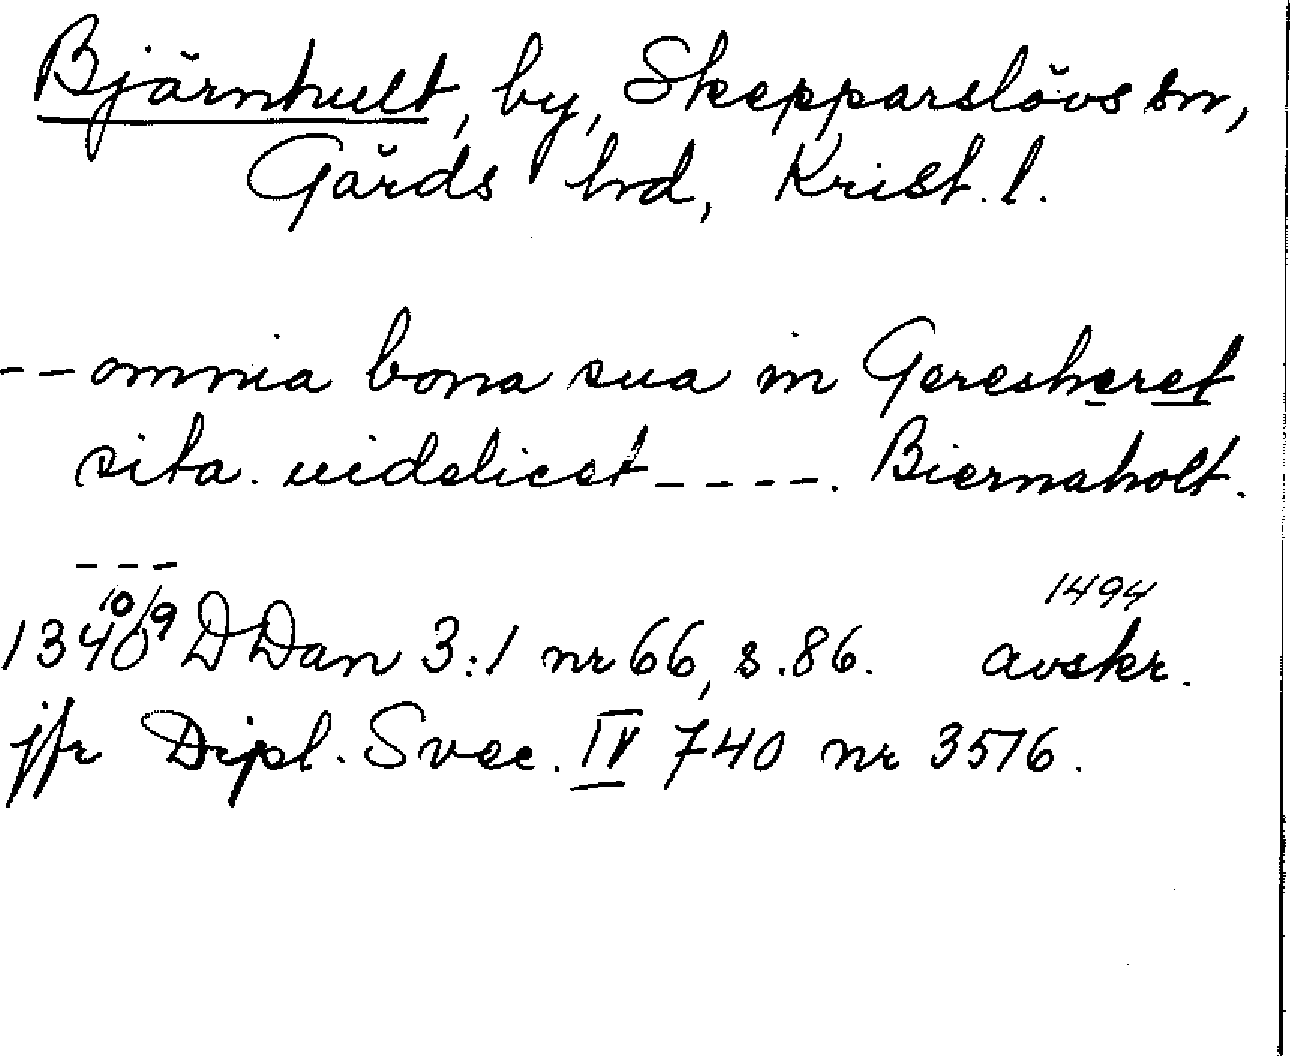 Bjärnhult, by, Skepparslövs sn,
Gärds hd, Krist. l.
-- omnia bona sua in Geresheret
sita. uidelicet ----. Biernaholt.
---
1340 10/9 DDan 3:1 nr 66, s. 86. 1494 avskr.
jfr Dipl. Svec. IV 740 nr 3516.